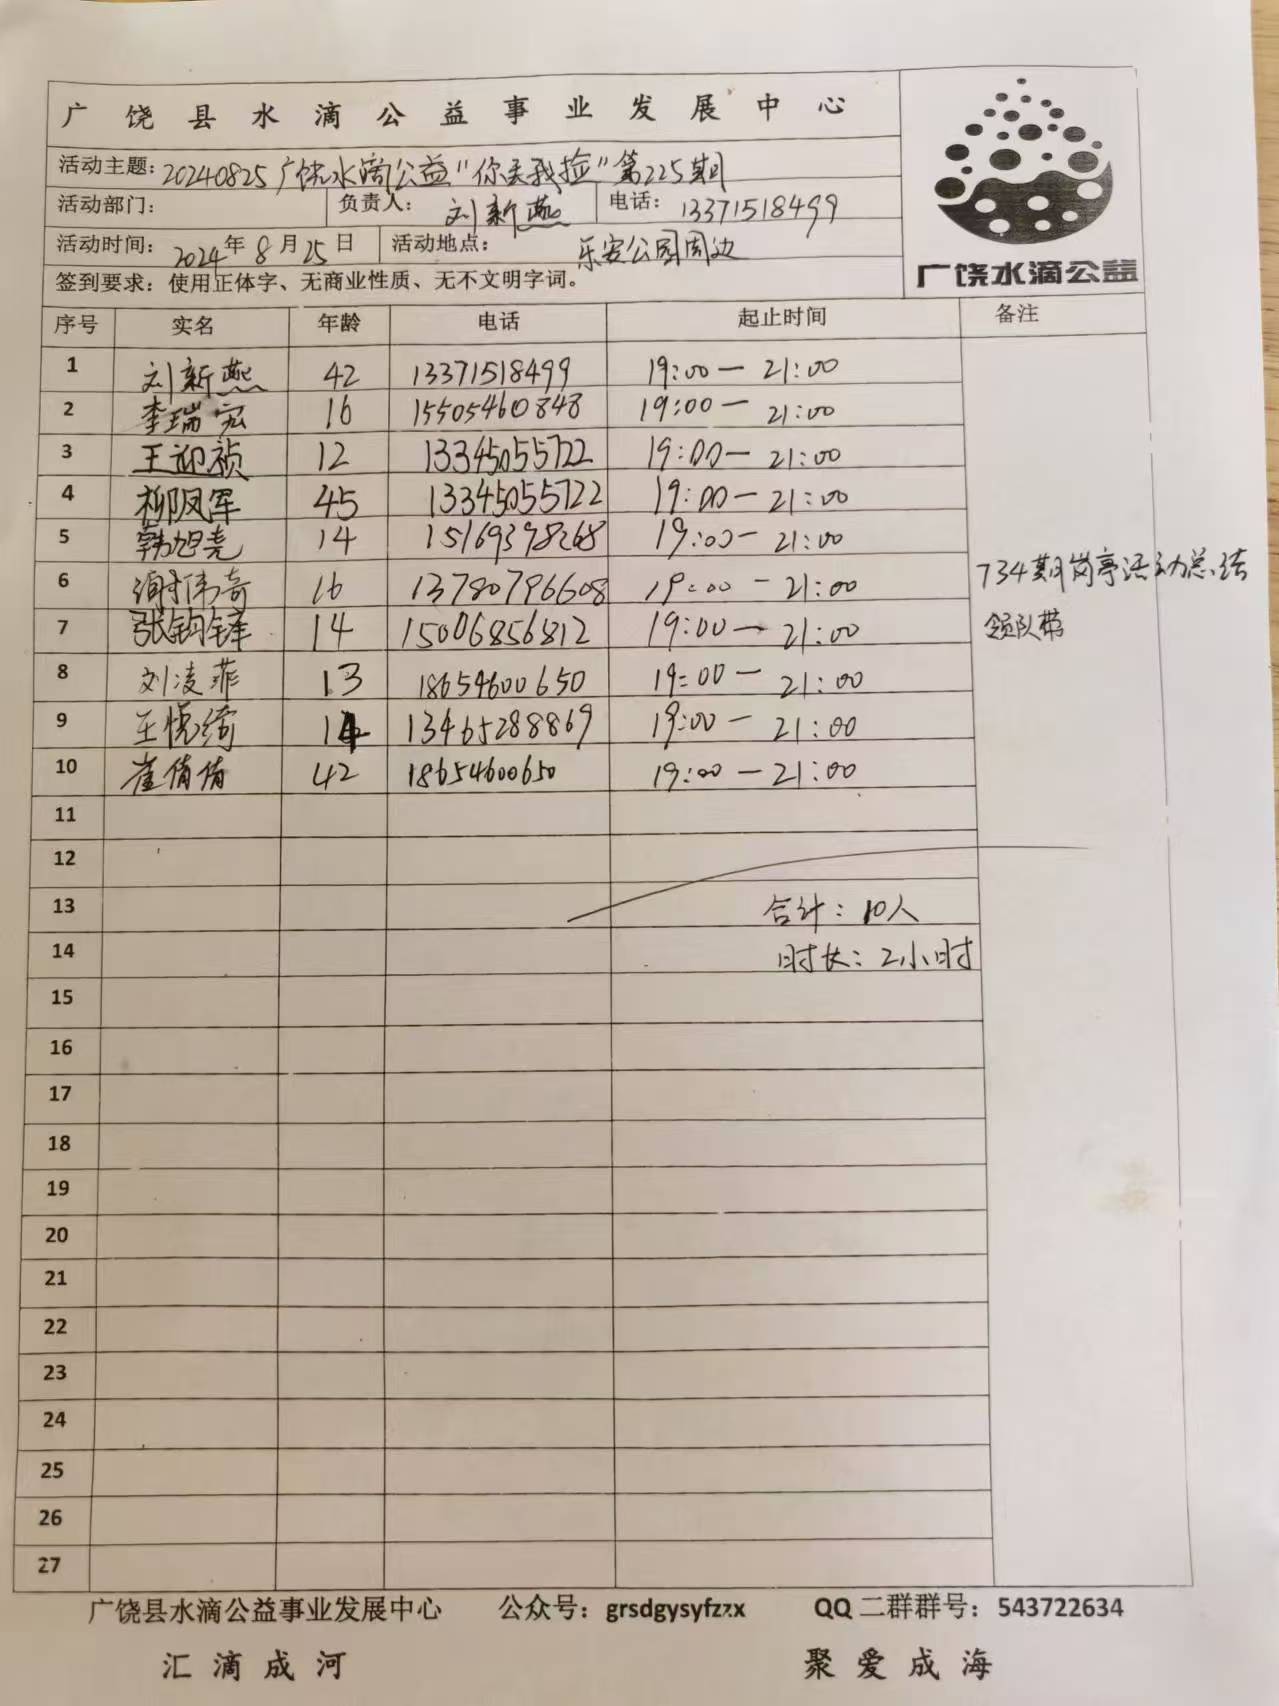 广饶县水滴公益事业发展中心
活动主题：20240825广饶水滴公益"你丢我捡"第225期
活动部门： 负责人：刘新燕 电话：13371518499
活动时间：2024年8月25日 活动地点：乐安公园周边
签到要求：使用正体字、无商业性质、无不文明字词。
广饶水滴公益
序号 实名 年龄 电话 起止时间 备注
1 刘新燕 42 13371518499 19:00－21:00
2 李瑞宏 16 15505460848 19:00－21:00
3 王迎祯 12 13345055722 19:00－21:00
4 柳凤军 45 13345055722 19:00－21:00
5 韩旭尧 14 15169398268 19:00－21:00
6 伟奇 16 13780796608 19:00－21:00
7 张钧锋 14 15006856812 19:00－21:00
8 刘凌菲 13 18654600650 19:00－21:00
9 王悦绮 14 13465288869 19:00－21:00
10 崔倩倩 42 18654600650 19:00－21:00
734期岗亭活动总结
领队带
11
12
13 合计：10人
14 时长：2小时
15
16
17
18
19
20
21
22
23
24
25
26
27
广饶县水滴公益事业发展中心 公众号：grsdgysyfzzx QQ二群群号：543722634
汇滴成河 聚爱成海